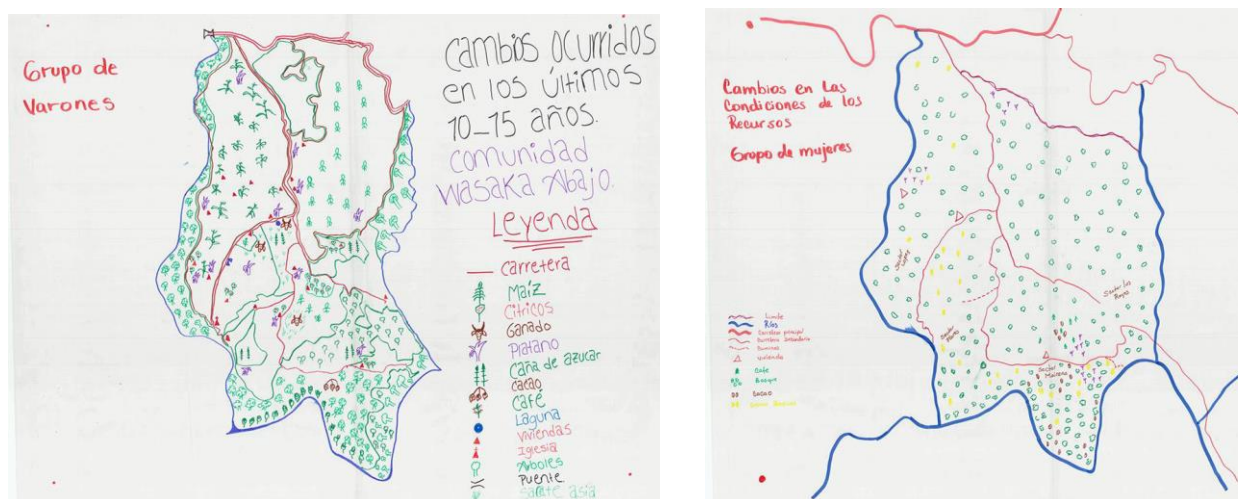 Grupo de
Varones
Cambios ocurridos
en los últimos
10-15 años.
comunidad
Wasaka Abajo.
Leyenda
Carretera
Maíz
Citricos
Ganado
Platano
Caña de azucar
cacao
Café
Laguna
Viviendas
Iglesia
Arboles
Puente
Cambios en Las
Condiciones de los
Recursos
Grupo de mujeres
Sector Los
Sector
Limite
Ríos
Carretera principal
Caminos
vivienda
Café
Bosque
Cacao